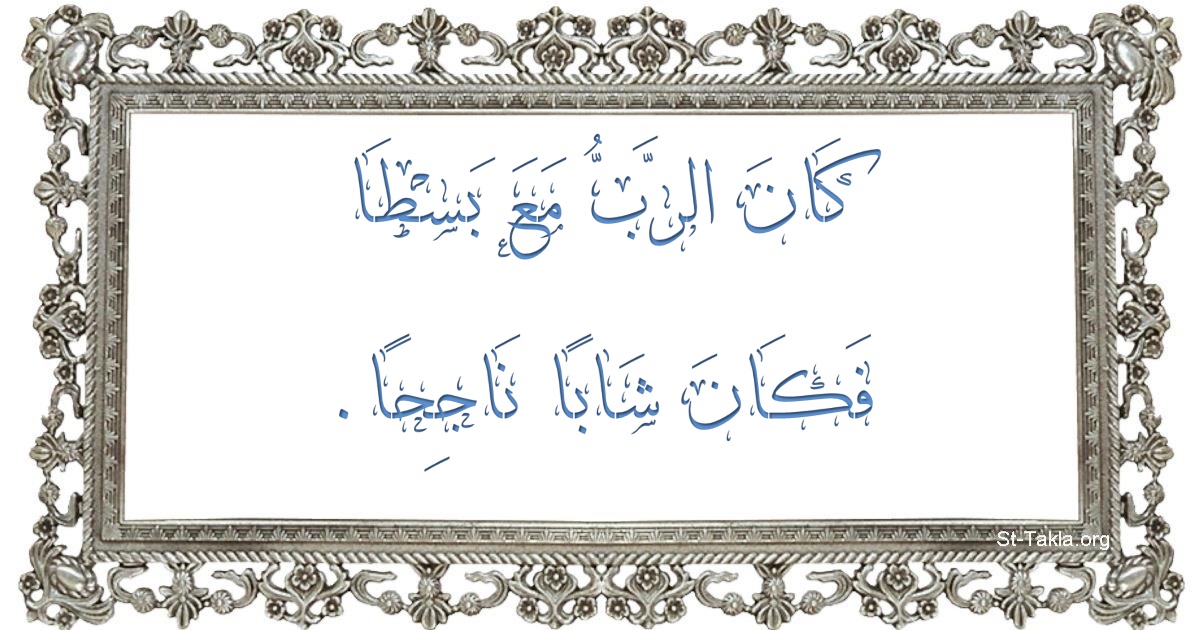 كَانَ الرَّبُّ مَعَ بَسْطَا
فَكَانَ شَابًا نَاجِحًا .
St-Takla.org